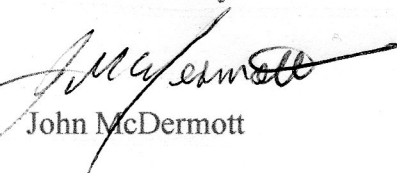 J McDermott
John McDermott